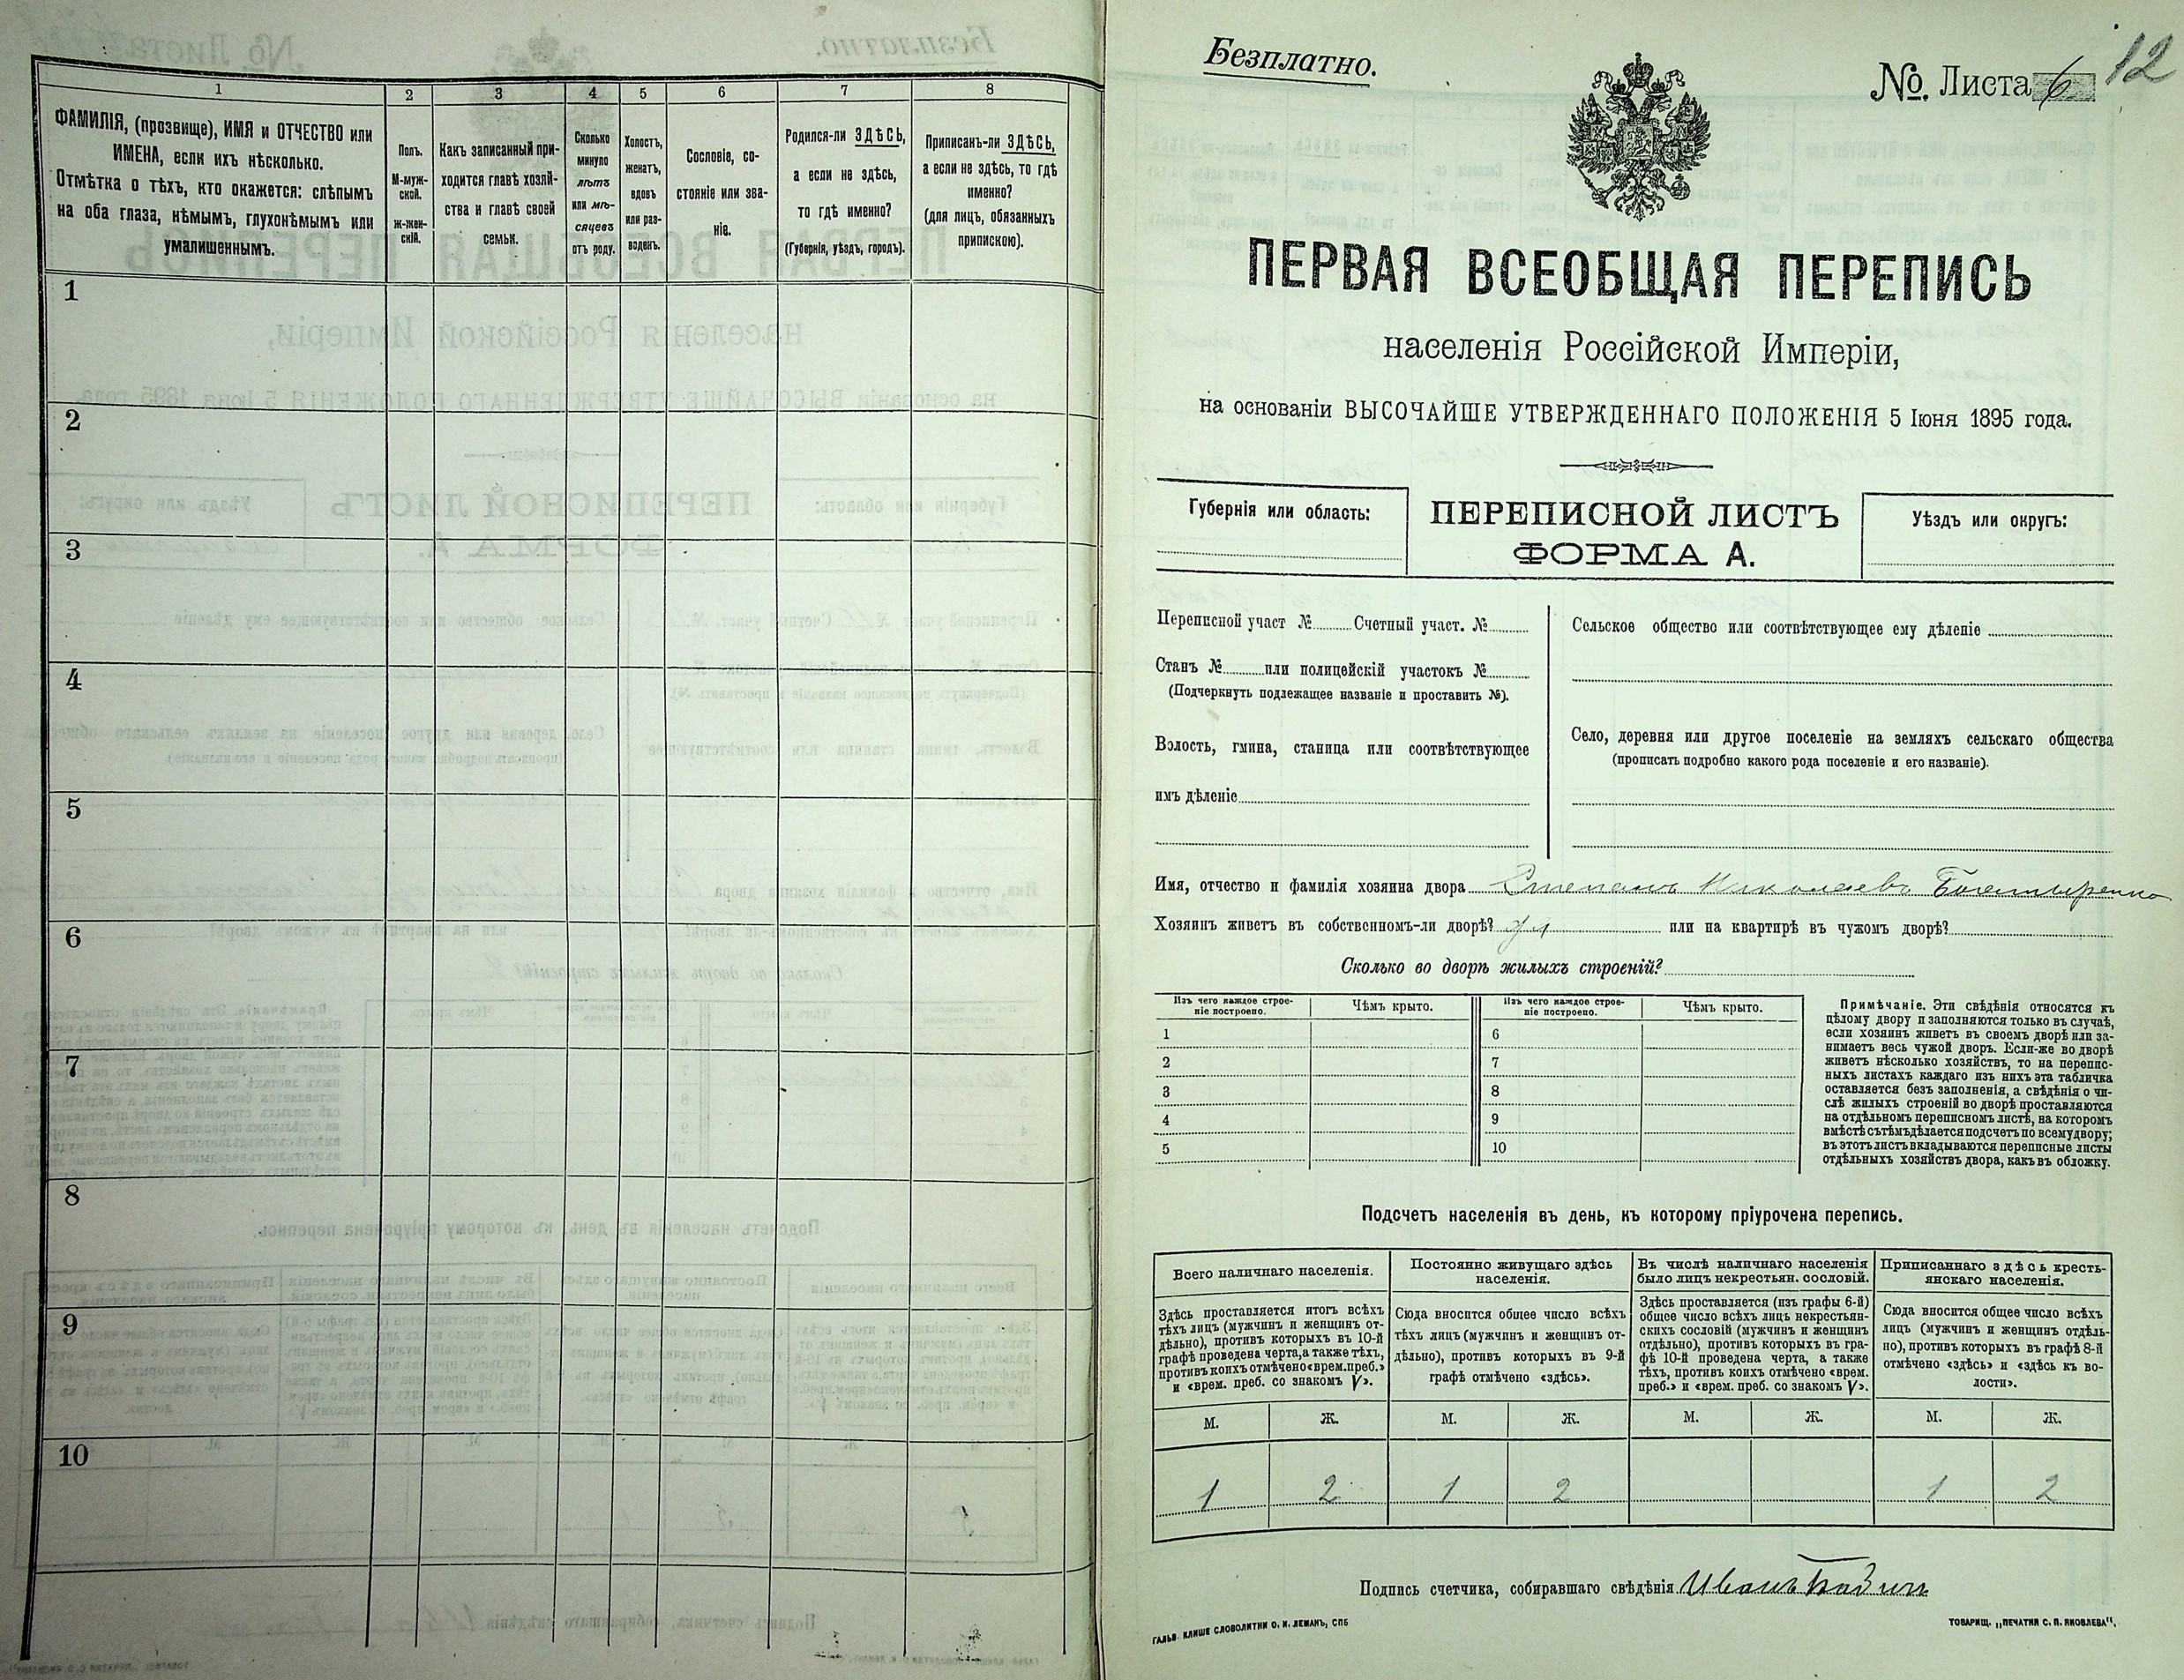 1 2 3 4 5 6 7 8
ФАМИЛІЯ, (прозвище), ИМЯ и ОТЧЕСТВО или
ИМЕНА, если ихъ нѣсколько.
Отмѣтка о тѣхъ, кто окажется: слѣпымъ
на оба глаза, нѣмымъ, глухонѣмымъ или
умалишеннымъ.
Полъ.
М-муж-
ской.
ж-жен-
скій.
Какъ записанный при-
ходится главѣ хозяй-
ства и главѣ своей
семьи.
Сколько
минуло
лѣтъ
или мѣ-
сяцевъ
отъ роду.
Холостъ,
женатъ,
вдовъ
или раз-
веденъ.
Сословіе, со-
стояніе или зва-
ніе.
Родился-ли ЗДѢСЬ,
а если не здѣсь,
то гдѣ именно?
(Губернія, уѣздъ, городъ).
Приписанъ-ли ЗДѢСЬ,
а если не здѣсь, то гдѣ
именно?
(для лицъ, обязанныхъ
припискою).
1
2
3
4
5
6
7
8
9
10
Безплатно.
№. Листа 6
12
ПЕРВАЯ ВСЕОБЩАЯ ПЕРЕПИСЬ
населенія Россійской Имперіи,
на основаніи ВЫСОЧАЙШЕ УТВЕРЖДЕННАГО ПОЛОЖЕНІЯ 5 Іюня 1895 года.
Губернія или область:
ПЕРЕПИСНОЙ ЛИСТЪ
ФОРМА А.
Уѣздъ или округъ:
Переписной участ № Счетный участ. №
Станъ № или полицейскій участокъ №
(Подчеркнуть подлежащее названіе и проставить №).
Волость, гмина, станица или соотвѣтствующее
имъ дѣленіе
Сельское общество или соотвѣтствующее ему дѣленіе
Село, деревня или другое поселеніе на земляхъ сельскаго общества
(прописать подробно какого рода поселеніе и его названіе).
Имя, отчество и фамилія хозяина двора Степанъ Николаевъ
Хозяинъ живетъ въ собственномъ-ли дворѣ? да или на квартирѣ въ чужомъ дворѣ?
Сколько во дворѣ жилыхъ строеній?
Изъ чего каждое строе-
ніе построено.
Чѣмъ крыто.
1
2
3
4
5
Изъ чего каждое строе-
ніе построено.
Чѣмъ крыто.
6
7
8
9
10
Примѣчаніе. Эти свѣдѣнія относятся къ
цѣлому двору и заполняются только въ случаѣ,
если хозяинъ живетъ въ своемъ дворѣ или за-
нимаетъ весь чужой дворъ. Если-же во дворѣ
живетъ нѣсколько хозяйствъ, то на перепис-
ныхъ листахъ каждаго изъ нихъ эта табличка
оставляется безъ заполненія, а свѣдѣнія о чи-
слѣ жилыхъ строеній во дворѣ проставляются
на отдѣльномъ переписномъ листѣ, на которомъ
вмѣстѣ съ тѣмъ дѣлается подсчетъ по всему двору;
въ этотъ листъ вкладываются переписные листы
отдѣльныхъ хозяйствъ двора, какъ въ обложку.
Подсчетъ населенія въ день, къ которому пріурочена перепись.
Всего наличнаго населенія.
Здѣсь проставляется итогъ всѣхъ
тѣхъ лицъ (мужчинъ и женщинъ от-
дѣльно), противъ которыхъ въ 10-й
графѣ проведена черта, а также тѣхъ,
противъ коихъ отмѣчено «врем. преб.»
и «врем. преб. со знакомъ V».
Постоянно живущаго здѣсь
населенія.
Сюда вносится общее число всѣхъ
тѣхъ лицъ (мужчинъ и женщинъ от-
дѣльно), противъ которыхъ въ 9-й
графѣ отмѣчено «здѣсь».
Въ числѣ наличнаго населенія
было лицъ некрестьян. сословій.
Здѣсь проставляется (изъ графы 6-й)
общее число всѣхъ лицъ некрестьян-
скихъ сословій (мужчинъ и женщинъ
отдѣльно), противъ которыхъ въ гра-
фѣ 10-й проведена черта, а также
тѣхъ, противъ коихъ отмѣчено «врем.
преб.» и «врем. преб. со знакомъ V».
Приписаннаго здѣсь кресть-
янскаго населенія.
Сюда вносится общее число всѣхъ
лицъ (мужчинъ и женщинъ отдѣль-
но), противъ которыхъ въ графѣ 8-й
отмѣчено «здѣсь» и «здѣсь къ во-
лости».
М. Ж. М. Ж. М. Ж. М. Ж.
1 2 1 2 1 2
Подпись счетчика, собиравшаго свѣдѣнія Иванъ
ГАЛЬВ. КЛИШЕ СЛОВОЛИТНИ О. И. ЛЕМАНЪ, СПБ
ТОВАРИЩ. „ПЕЧАТНЯ С. П. ЯКОВЛЕВА“.